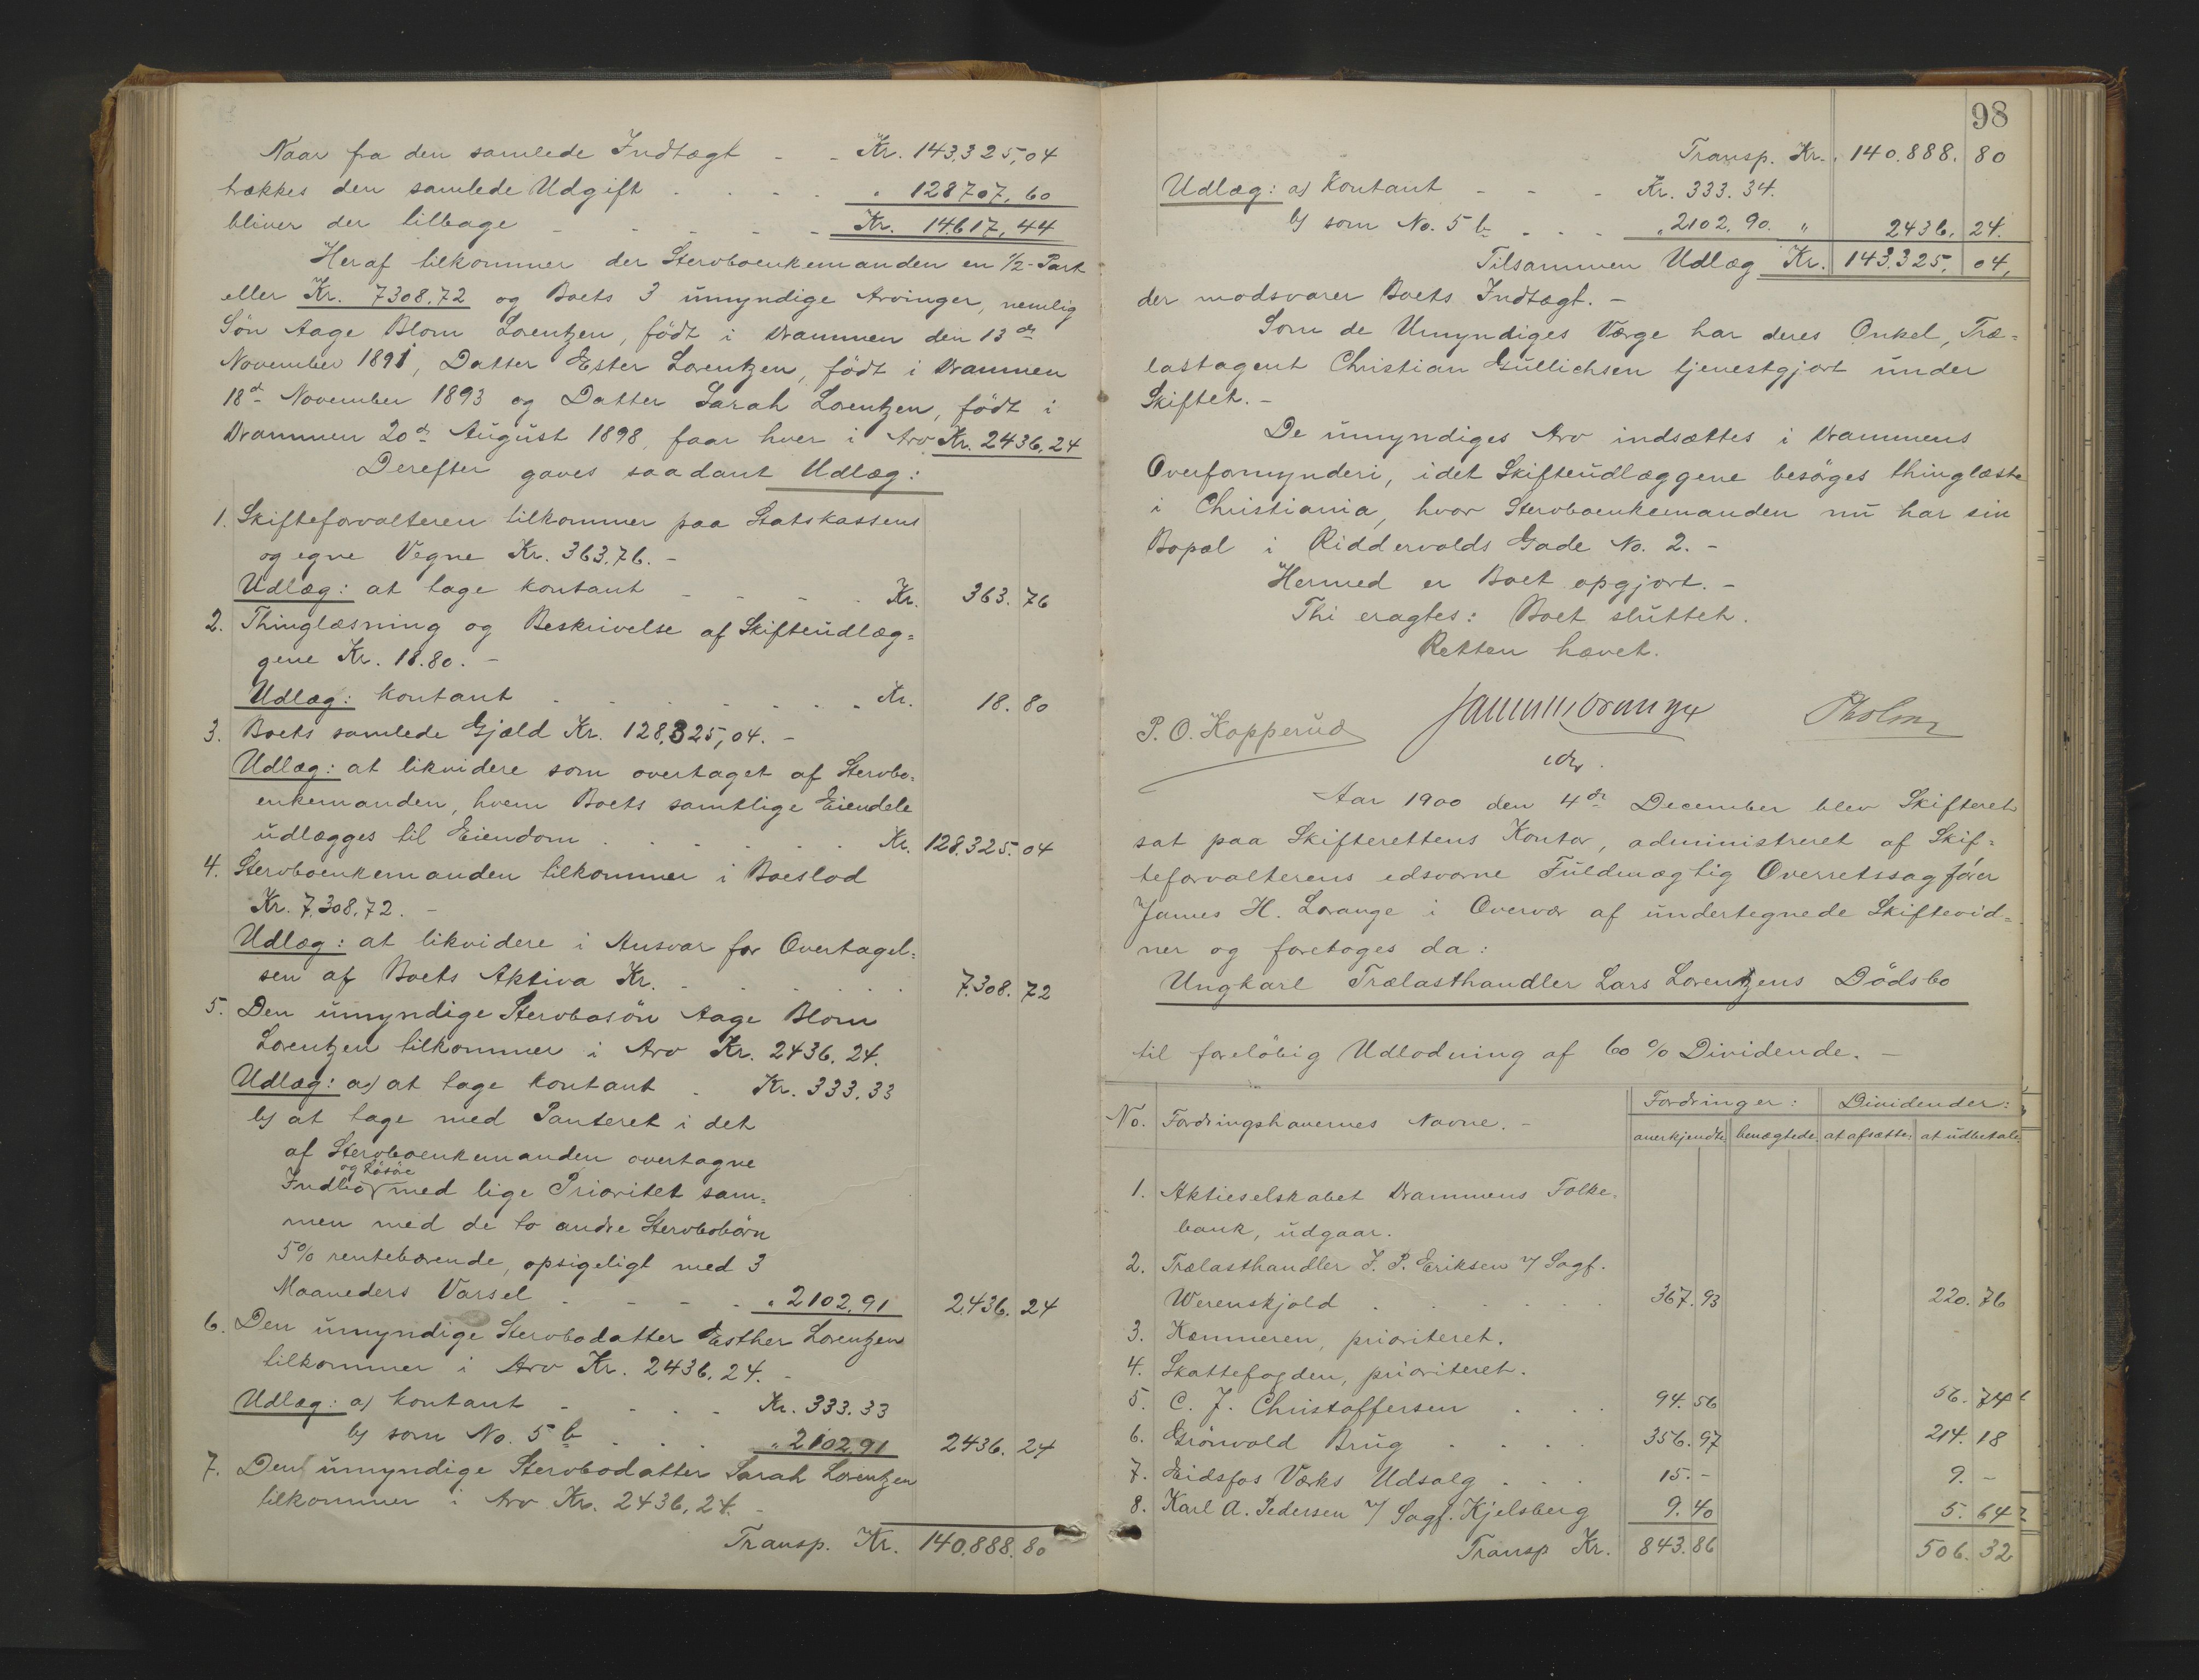 Naar fra den samlede Indtægt - - Kr. 143.325,04
trækkes den samlede Udgift . . . . " 128707,60
bliver der tilbage - - - - - Kr. 14617,44
Heraf tilkommer der Stervboenkemanden en 1/2-Part
eller Kr. 7308,72 og Boets 3 umyndige Arvinger, nemlig
Søn Aage Blom Lorentzen, født i Drammen den 13de
November 1891, Datter Ester Lorentzen, født i Drammen
18de November 1893 og Datter Sarah Lorentzen, født i
Drammen 20de August 1898, faar hver i Arv Kr. 2436,24
Derefter gaves saadant Udlæg:
1. Skifteforvalteren tilkommer paa Statskassens
og egne Vegne Kr. 363.76. -
Udlæg: at tage kontant - - - . Kr. 363. 76
2. Thinglæsning og Beskrivelse af Skifteudlæg=
gene Kr. 18.80. -
Udlæg: kontant . . . . . . . Kr. 18. 80
3. Boets samlede Gjæld Kr. 128,325,04. -
Udlæg: at likvidere som overtaget af Stervbo=
enkemanden, hvem Boets samtlige Eiendele
udlægges til Eiendom . . . . . . Kr. 128.325. 04
4. Stervboenkemanden tilkommer i Boeslod
Kr. 7.308,72. -
Udlæg: at likvidere i Ansvar for Overtagel=
sen af Boets Aktiva Kr. . . . . . . 7.308. 72
5. Den umyndige Stervbosøn Aage Blom
Lorentzen tilkommer i Arv Kr. 2436.24.
Udlæg: a) at tage kontant . Kr. 333.33
b) at tage med Panteret i det
af Stervboenkemanden overtagne
og Løsøe
Indbo med lige Prioritet sam=
men med de to andre Stervbobørn
5% rentebærende, opsigeligt med 3
Maaneders Varsel . - - - . " 2102,91 2436. 24
6. Den umyndige Stervbodatter Esther Lorentzen
tilkommer i Arv Kr. 2436,24. -
Udlæg: a) kontant - . . . Kr. 333.33
b) som No. 5 b . . . " 2102,91 2436. 24
7. Den umyndige Stervbodatter Sarah Lorentzen
tilkommer i Arv Kr. 2436,24. -
Transp. Kr. 140.888. 80
98
Transp. Kr. 140.888. 80
Udlæg: a) Kontant - - - Kr. 333.34.
b) som No. 5 b - . . . " 2102,90. " 2436. 24.
Tilsammen Udlæg Kr. 143.325. 04,
der modsvarer Boets Indtægt. -
Som de Umyndiges Værge har deres Onkel, Træ=
lastagent Christian Gullichsen tjenestgjort under
Skiftet. -
De umyndiges Arv indsættes i Drammens
Overformynderi, idet Skifteudlæggene besøges thinglæste
i Christiania, hvor Stervboenkemanden nu har sin
Bopæl i Riddervolds Gade No. 2. -
Hermed er Boet opgjort. -
Thi eragtes: Boet sluttet.
Retten hævet.
P. O. Kopperud
Aar 1900 den 4de December blev Skifteret
sat paa Skifterettens Kontor, administreret af Skif=
teforvalterens edsvorne Fuldmægtig Overretssagfører
James H. Lorange i Overvær af undertegnede Skiftevid=
ner og foretoges da:
Ungkarl Trælasthandler Lars Lorentzens Dødsbo
til foreløbig Udlodning af 60 % Dividende. -
Fordringer: Dividender:
No. Fordringshavernes Navne. - anerkjendte benægtede at afsætte at udbetale
1. Aktieselskabet Drammens Folke=
bank, udgaar.
2. Trælasthandler J. P. Eriksen v/ Sagf.
Werenskjold . . . . . . 367. 93 220. 76
3. Kæmneren, prioriteret.
4. Skattefogden, prioriteret.
5. C. J. Christoffersen . . . 94. 56 56. 74
6. Grönvold Brug . . . . 356. 97 214. 18
7. Eidsfos Værks Udsalg . . . 15. - 9. -
8. Karl A. Pedersen v/ Sagf. Kjelsberg 9. 40 5. 64
Transp Kr. 843. 86 506. 32